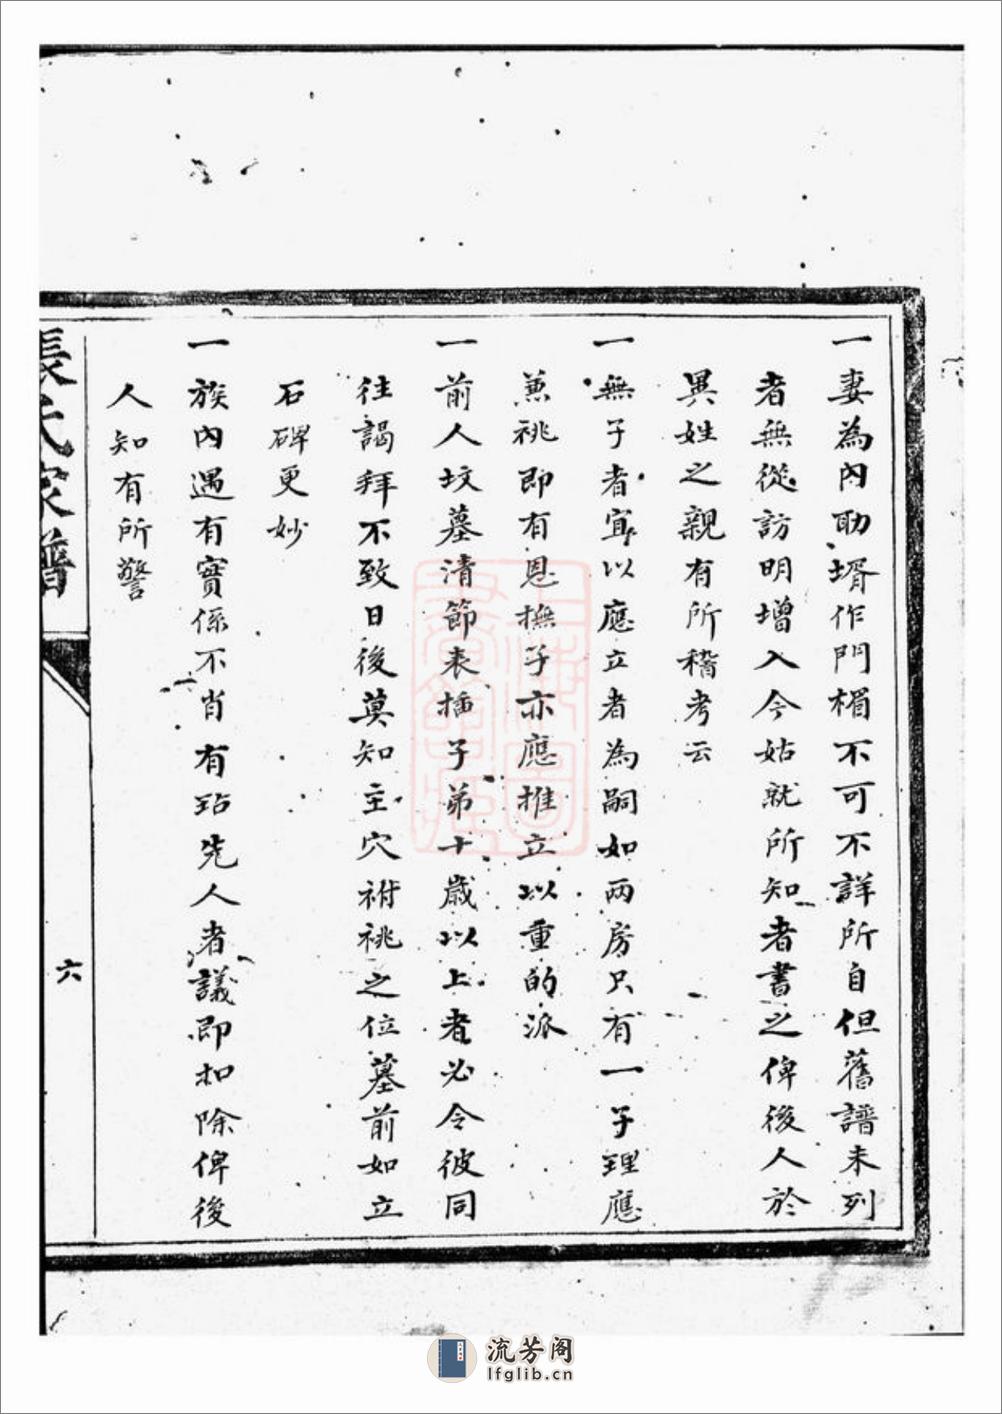 一妻為內助壻作門楣不可不詳所自但舊譜未列
者無從訪明增入今姑就所知者書之俾後人於
異姓之親有所稽考云
一無子者宜以應立者為嗣如兩房只有一子理應
兼祧即有恩撫子亦應推立以重的派
一前人坟墓清節表插子弟十歲以上者必令彼同
往謁拜不致日後莫知主穴祔祧之位墓前如立
石碑更妙
一族內遇有實係不肖有玷先人者議即扣除俾後
人知有所警
張氏家譜
六
上海圖書館藏
流芳阁
lfglib.cn